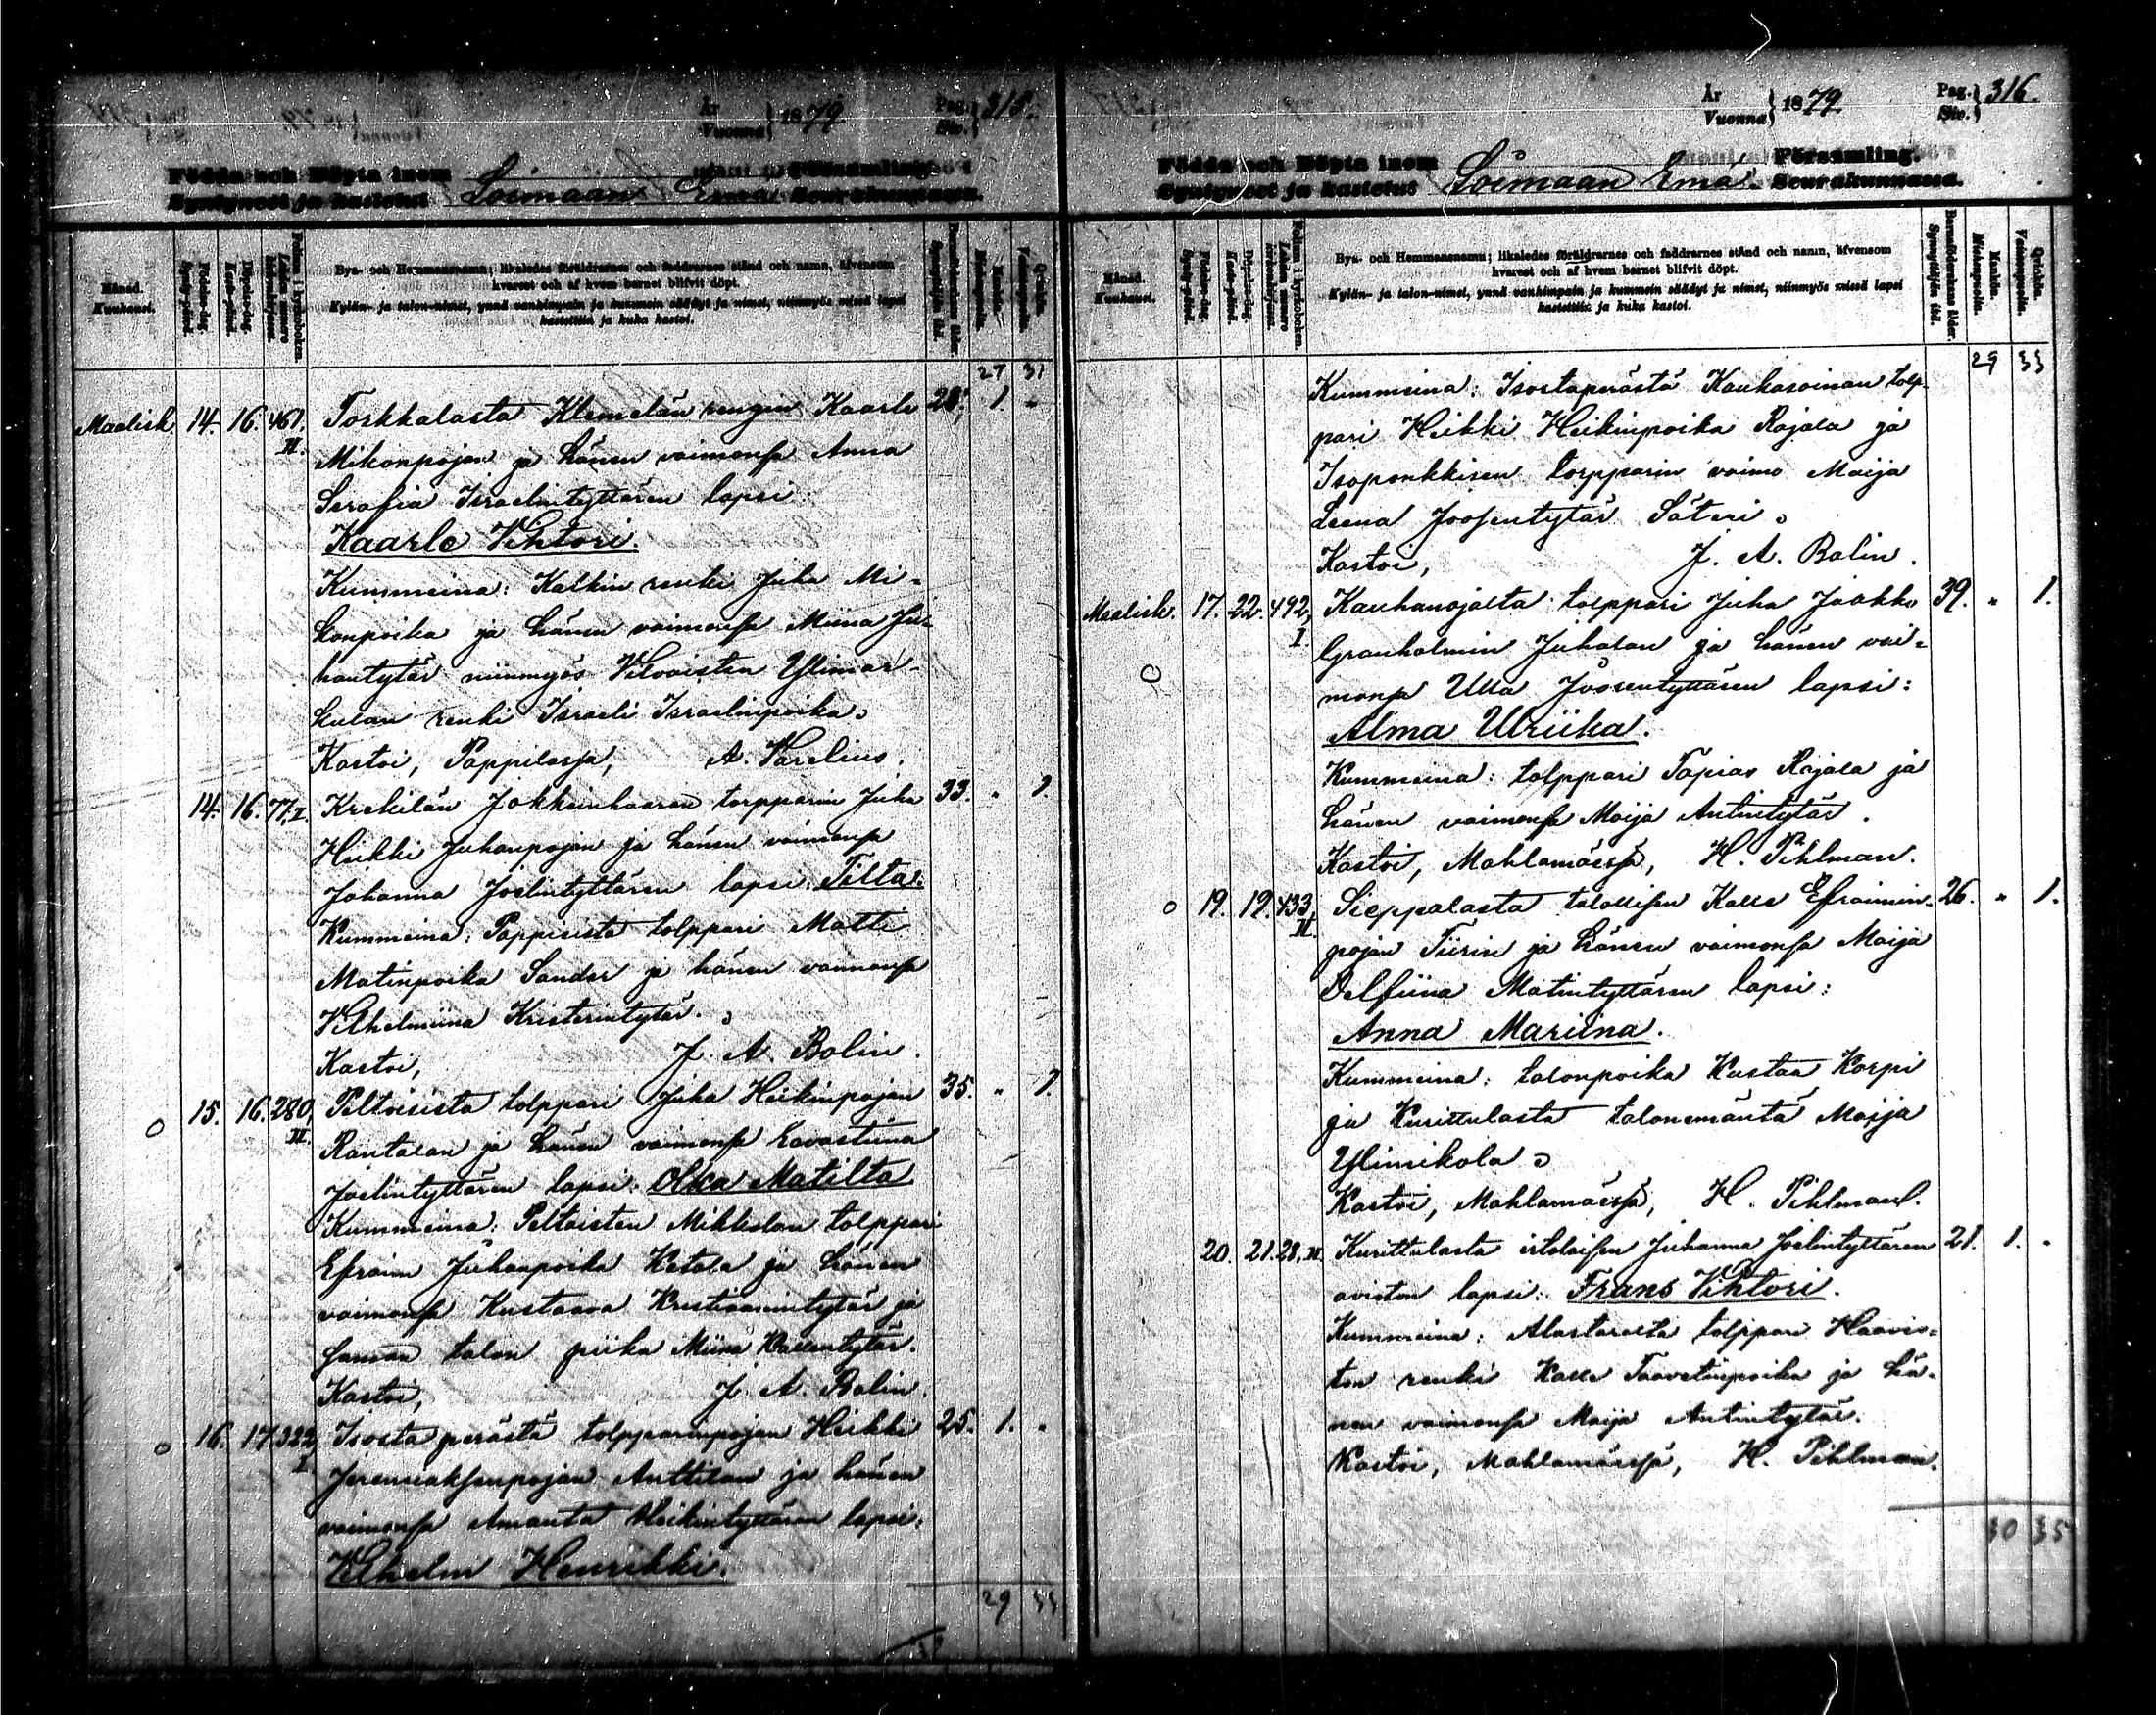 År
Vuonna } 1879. Pag.
Siv. } 315.
Födda och Döpta inom
Syntyneet ja kastetut Loimaan Emä Församling.
Seurakunnassa.
Månad.
Kuukausi.
Födelse-dag.
Synty-päivä.
Döpelse-dag.
Kaste-päivä.
Folium i kyrkoboken.
Lehden numero kirkonkirjassa.
Bya- och Hemmansnamn; likaledes föräldrarnes och faddrarnes stånd och namn, äfvensom
hvarest och af hvem barnet blifvit döpt.
Kylän- ja talon-nimet, ynnä vanhimpain ja kummein säädyt ja nimet, niinmyös missä lapsi
kastettiin ja kuka kastoi.
Barnaföderskans ålder.
Synnyttäjän ikä.
Mankön.
Miehenpuolia.
Qvinkön.
Vaimonpuolia.
27 31
Maalisk. 14. 16. 461. II. Torkkalasta Klemelän rengin Kaarle 28. 1. "
Mikonpojan ja hänen vaimonsa Anna
Serafia Israelintyttären lapsi:
Kaarle Vihtori.
Kummeina: Kalkin renki Juha Mi-
konpoika ja hänen vaimonsa Miina Ju-
hontytär niinmyös Vilvaisten Ylimar-
kulan renki Israeli Israelinpoika.
Kastoi, Pappilassa, A. Varelius.
14. 16. 77. I. Krekilän Jokkeinhaaran torpparin Juha 33. " 1.
Heikki Juhanpojan ja hänen vaimonsa
Johanna Joelintyttären lapsi: Tilta.
Kummeina: Pappisista tolppari Matti
Matinpoika Sandar ja hänen vaimonsa
Vilhelmiina Kristerintytär.
Kastoi, J. A. Bolin.
15. 16. 280, II. Peltoisista tolppari Juha Heikinpojan 35. " 1.
Rantalan ja hänen vaimonsa Eevastiina
Joelintyttären lapsi: Olka Matilta
Kummeina: Peltoisten Mikkolan tolppari
Efraim Juhanpoika Ketola ja hänen
vaimonsa Kustaava Kristiaanintytär ja
saman talon piika Miina Kallentytär.
Kastoi, J. A. Bolin.
16. 17. 322, I. Isosta perästä tolpparinpojan Heikki 25. 1. "
Jeremiaksenpojan Anttilan ja hänen
vaimonsa Amanta Heikintyttären lapsi:
Vilhelm Henrikki.
29 33
År
Vuonna } 1879. Pag.
Siv. } 316.
Födda och Döpta inom
Syntyneet ja kastetut Loimaan Emä Församling.
Seurakunnassa.
Månad.
Kuukausi.
Födelse-dag.
Synty-päivä.
Döpelse-dag.
Kaste-päivä.
Folium i kyrkoboken.
Lehden numero kirkonkirjassa.
Bya- och Hemmansnamn; likaledes föräldrarnes och faddrarnes stånd och namn, äfvensom
hvarest och af hvem barnet blifvit döpt.
Kylän- ja talon-nimet, ynnä vanhimpain ja kummein säädyt ja nimet, niinmyös missä lapsi
kastettiin ja kuka kastoi.
Barnaföderskans ålder.
Synnyttäjän ikä.
Mankön.
Miehenpuolia.
Qvinkön.
Vaimonpuolia.
29 33
Kummeina: Isostaperästä Kaukasoinan tolp-
pari Heikki Heikinpoika Rajala ja
Isoponkkisen torpparin vaimo Maija
Leena Joosentytär Säteri.
Kastoi, J. A. Bolin.
Maalisk. 17. 22. 492, I. Kauhanojalta tolppari Juha Jaakko 39. " 1.
Granholmin Juhalan ja hänen vai-
monsa Ulla Joosentyttären lapsi:
Alma Ulriika.
Kummeina: tolppari Tapias Rajala ja
hänen vaimonsa Maija Antintytär.
Kastoi, Mahlamäessä, H. Pihlman.
19. 19. 433, II. Sieppalasta talollisen Kalle Efraimin- 26. " 1.
pojan Tiirin ja hänen vaimonsa Maija
Delfiina Matintyttären lapsi:
Anna Mariina.
Kummeina: talonpoika Kustaa Korpi
ja Kurittulasta talonemäntä Maija
Ylinikola
Kastoi, Mahlamäessä, H. Pihlman.
20. 21. 28. II. Kurittulasta itsellisen Juhanna Joelintyttären 21. 1. "
avioton lapsi: Frans Vihtori.
Kummeina: Alastarolta tolppari Haavis-
ton renki Kalle Taavetinpoika ja hä-
nen vaimonsa Maija Antintytär.
Kastoi, Mahlamäessä, H. Pihlman.
30 35